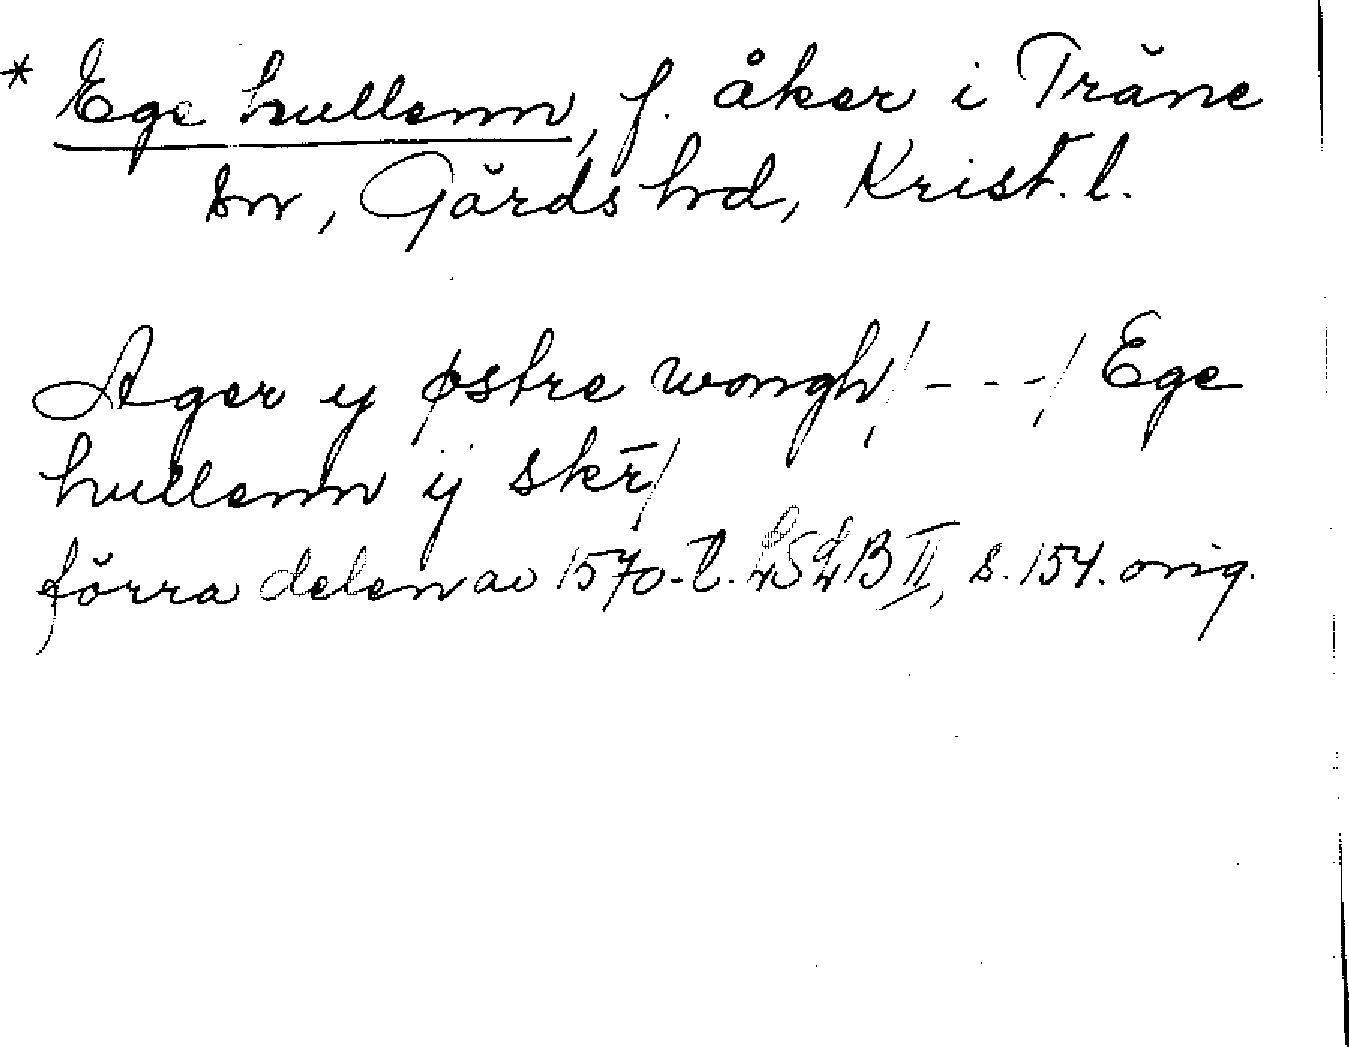 * Ege hullenn, f. åker i Träne
sn, Gärds hd, Krist. l.
Ager y østre wongh/ - - - / Ege
hullenn ij skr̄/
förra delen av 1570-t. LSLB II, s. 154. orig.